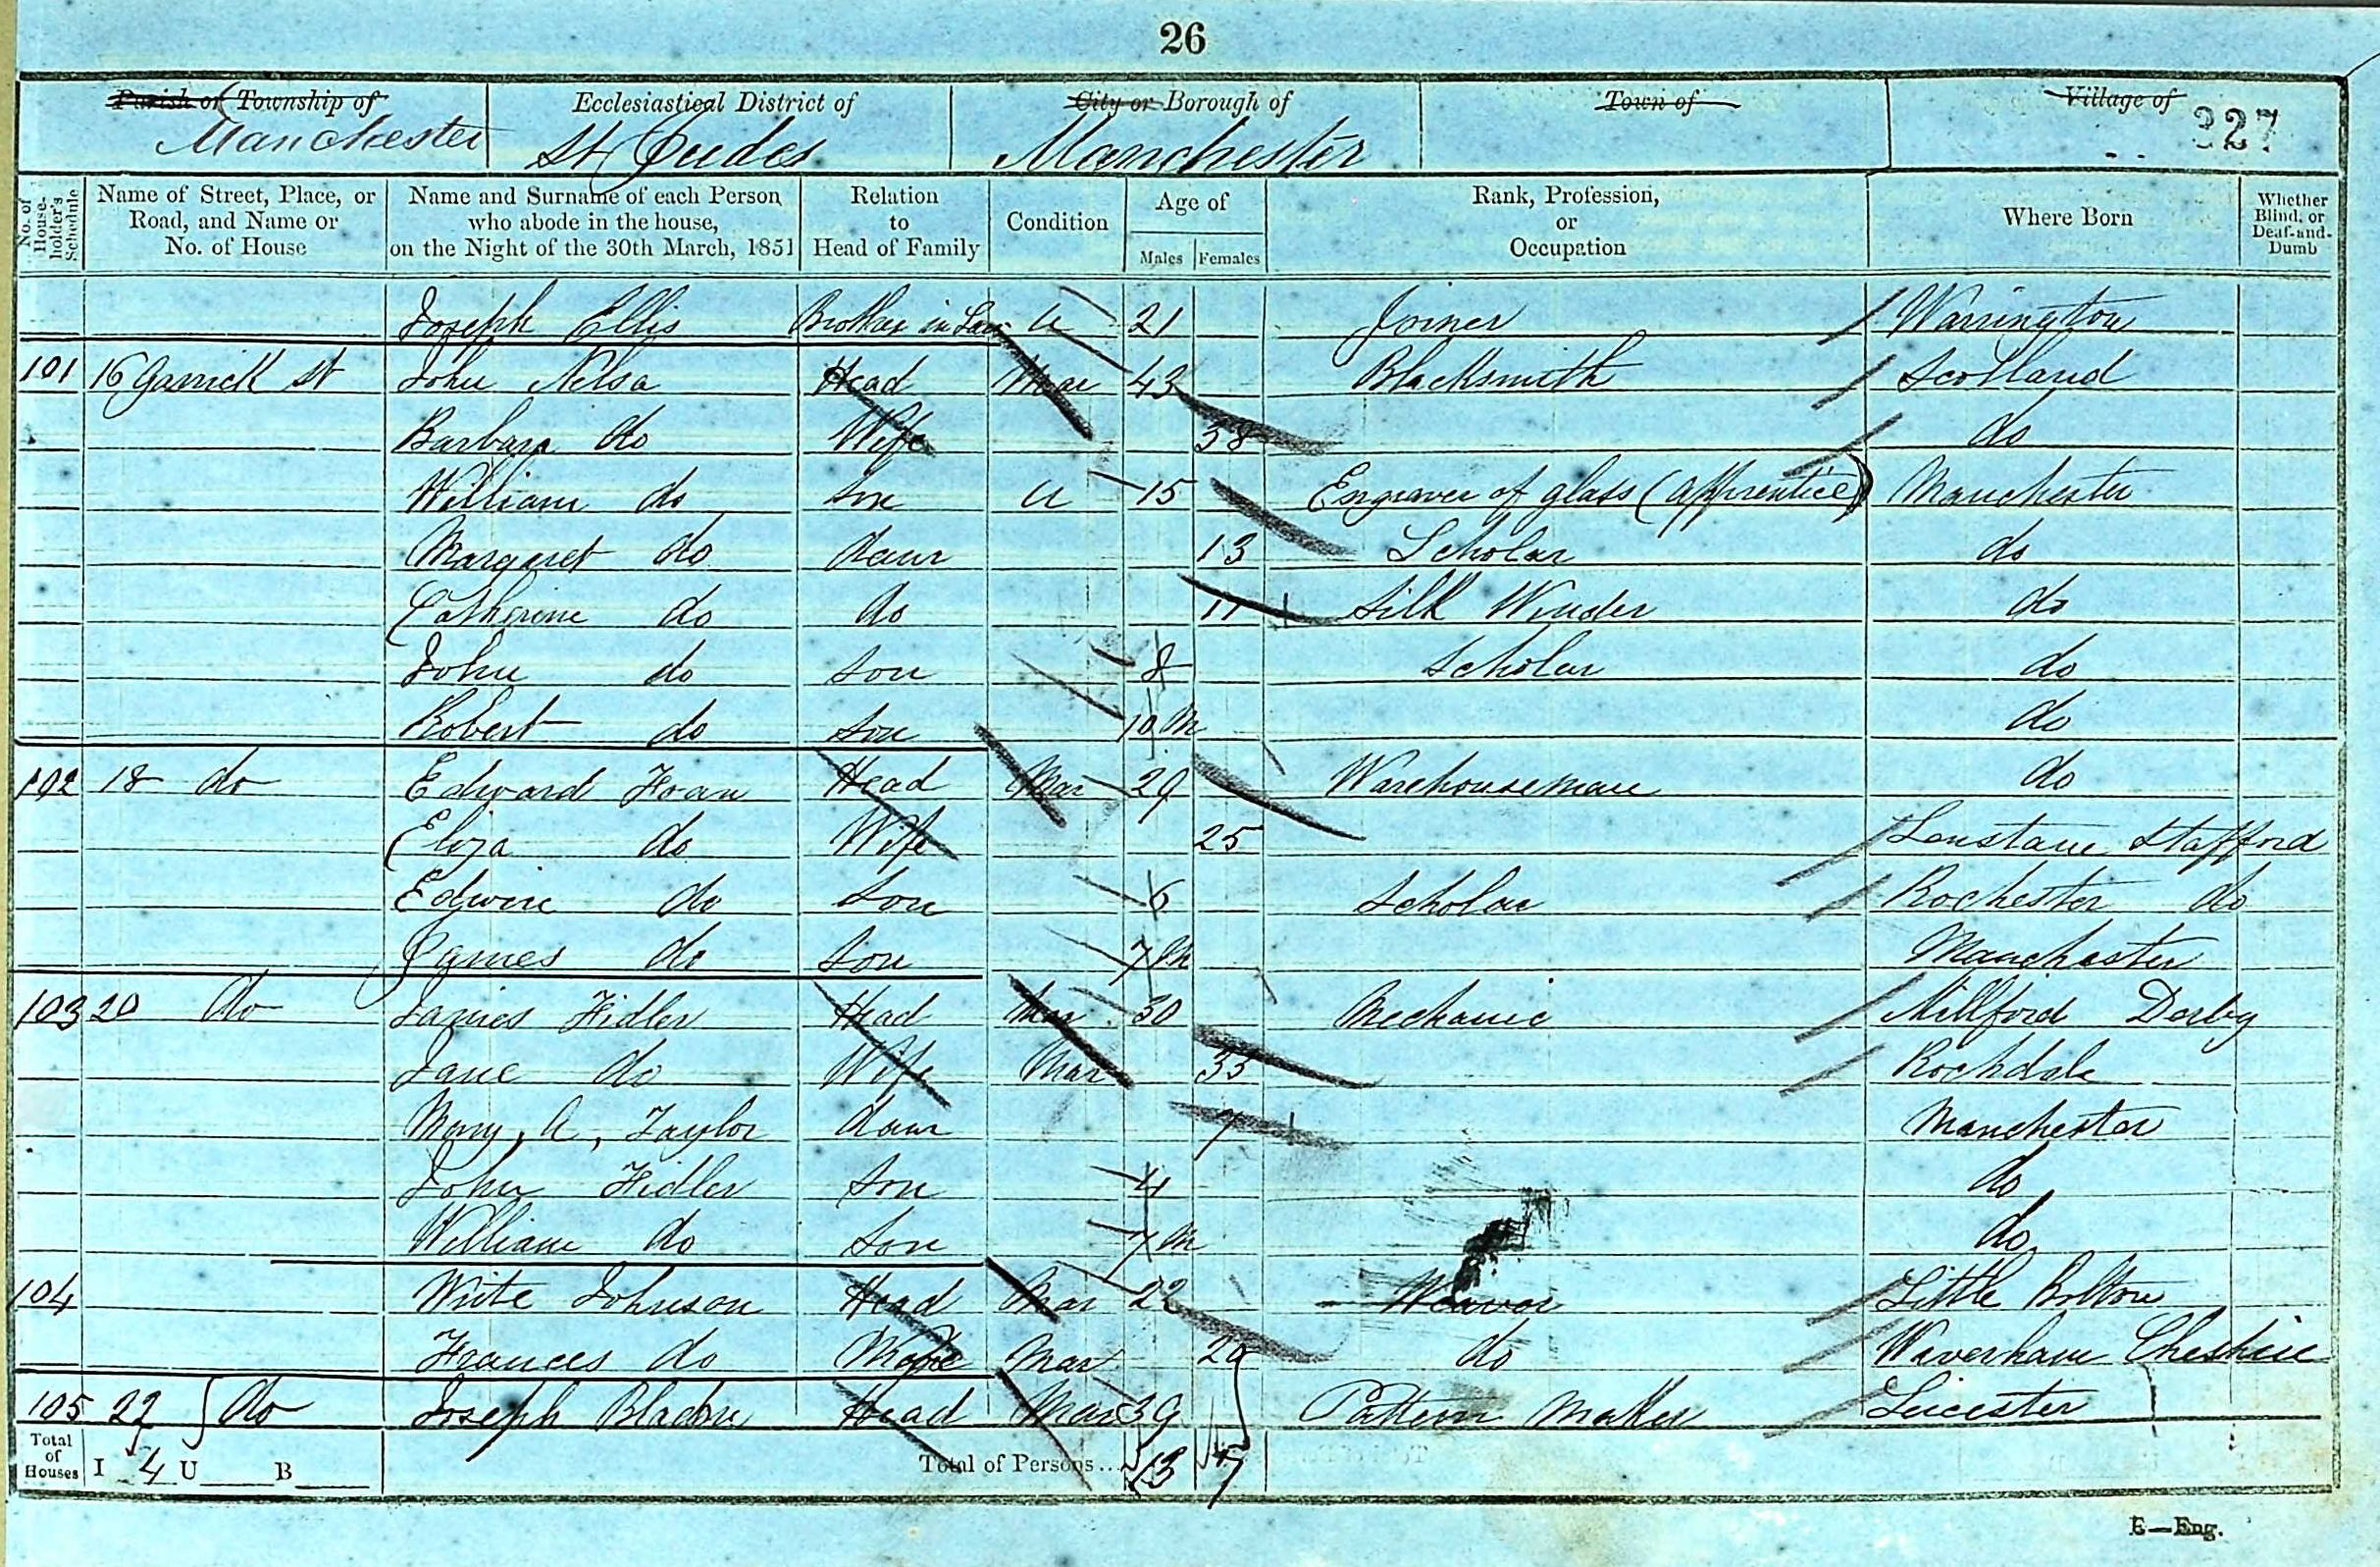 26
Parish or Township of Ecclesiastical District of City or Borough of Town of Village of
Manchester St Judes Manchester 327
No. of House-holder's Schedule Name of Street, Place, or Road, and Name or No. of House Name and Surname of each Person who abode in the house, on the Night of the 30th March, 1851 Relation to Head of Family Condition Age of Males Females Rank, Profession, or Occupation Where Born Whether Blind, or Deaf-and-Dumb
Joseph Ellis Brother in Law U 21 Joiner Warrington
101 16 Garrick st John Nelsa Head Mar 43 Blacksmith Scotland
Barbara do Wife 38 do
William do son U 15 Engraver of glass (apprentice) Manchester
Margaret do daur 13 Scholar do
Catherine do do 11 Silk Winder do
John do son 8 Scholar do
Robert do son 10 M do
102 18 do Edward Hoan Head Mar 29 Warehouseman do
Eliza do Wife 25 Stafford
Edwin do Son 6 Scholar Rochester do
James do Son 7 M Manchester
103 20 do James Fidler Head Mar 30 Mechanic Millford Derby
Jane do Wife Mar 35 Rochdale
Mary, A, Taylor daur 7 Manchester
John Fidler Son 4 do
William do Son 7 M do
104 Johnson Head Mar 22 Weaver Little Bolton
Frances do Mar do Waverham Cheshire
105 22 do Joseph Head Mar 39 Pattern Maker Leicester
Total of Houses I 4 U B Total of Persons... 13 7
E—Eng.